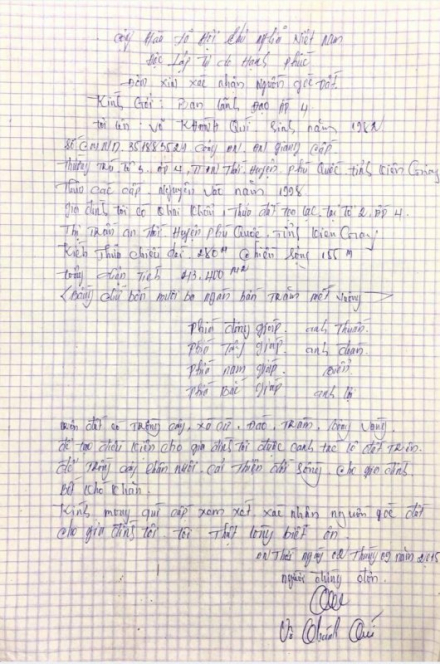 Cộng Hòa Xã Hội Chủ Nghĩa Việt Nam
Độc Lập Tự do Hạnh Phúc
Đơn xin xác nhận Nguồn gốc Đất
Kính Gởi: Ban lãnh Đạo ấp 4
tôi tên: Võ Khánh Quí Sinh năm
Số CMND. công an. An giang cấp
thường trú tổ 3, ấp 4, T.T An Thới Huyện Phú Quốc tỉnh Kiên Giang
Thửa các cấp nguyên vào năm 1998
gia đình tôi có Khai Khẩn 1 thửa đất tọa lạc tại tổ 2, ấp 4.
Thị Trấn An Thới Huyện Phú Quốc. Tỉnh Kiên Giang
Kích Thửa chiều dài 280M chiều rộng 155M
tổng diện tích 43.400 M2
(Bằng chữ bốn mươi ba ngàn bốn trăm mét vuông)
Phía đông giáp anh Thuấn.
Phía Tây giáp. anh
Phía nam giáp. Biển.
Phía Bắc giáp anh lợi
trên đất có trồng cây, xà cừ. Đào, Tràm, bông vang.
để tạo điều kiện cho gia đình tôi được canh tác lô đất Trên.
để trồng cây chăn nuôi, cải thiện đời sống, cho gia đình
bớt khó khăn.
Kính mong quí cấp xem xét, xác nhận nguồn gốc đất
cho gia đình tôi. tôi Thật lòng biết ơn.
An Thới ngày 02 Tháng 09 năm 2015
người đứng đơn.
Võ Khánh Quí